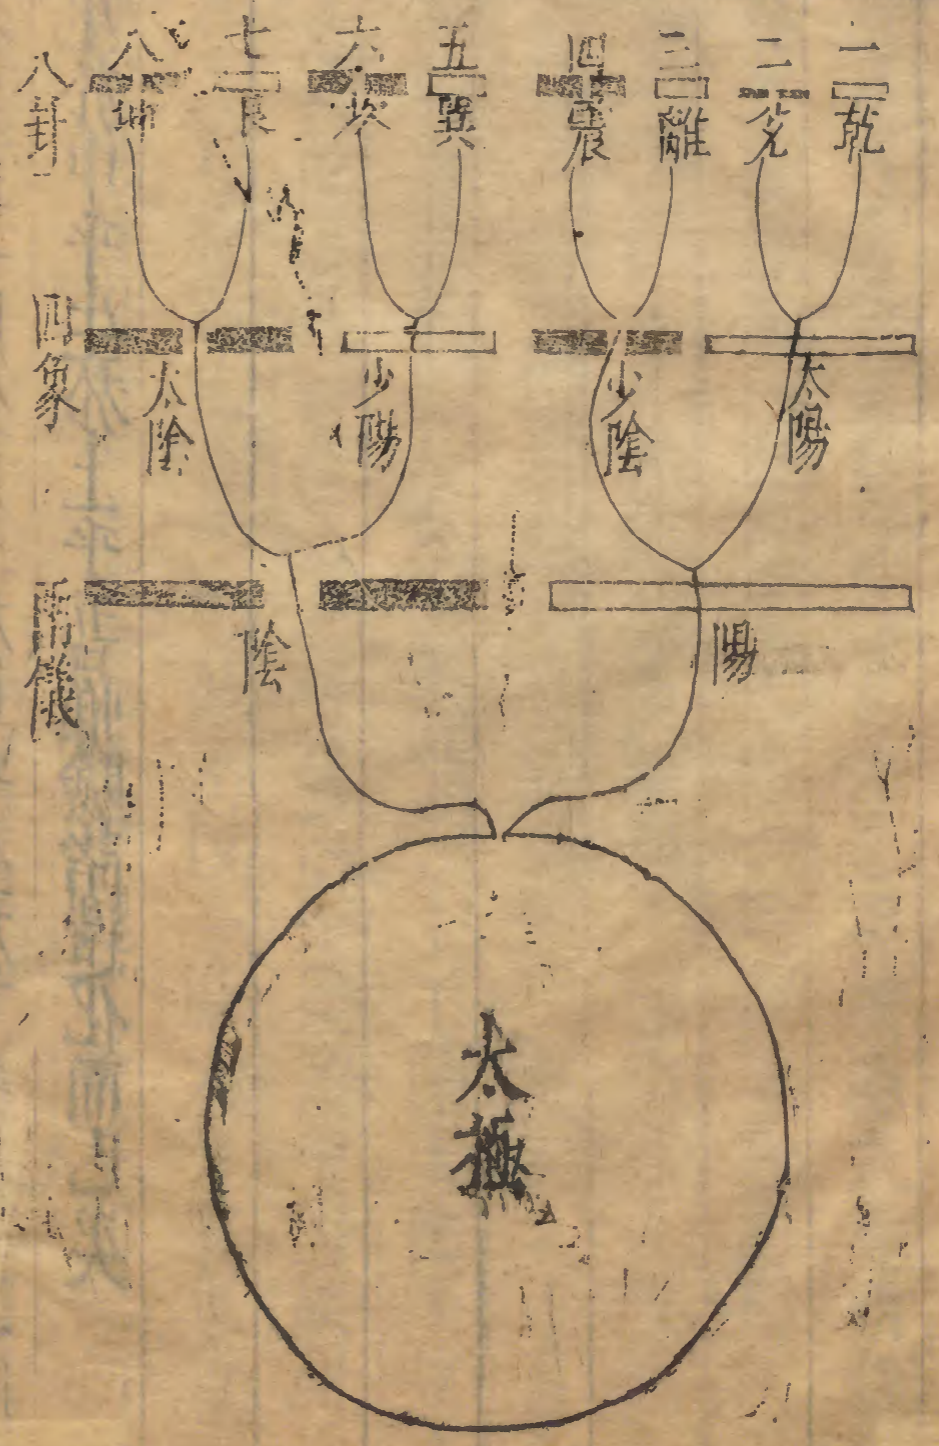 一乾
二兌
三離
四震
五巽
六坎
七艮
八坤
八卦
太陽
少陰
少陽
太陰
四象
陽
陰
兩儀
太極